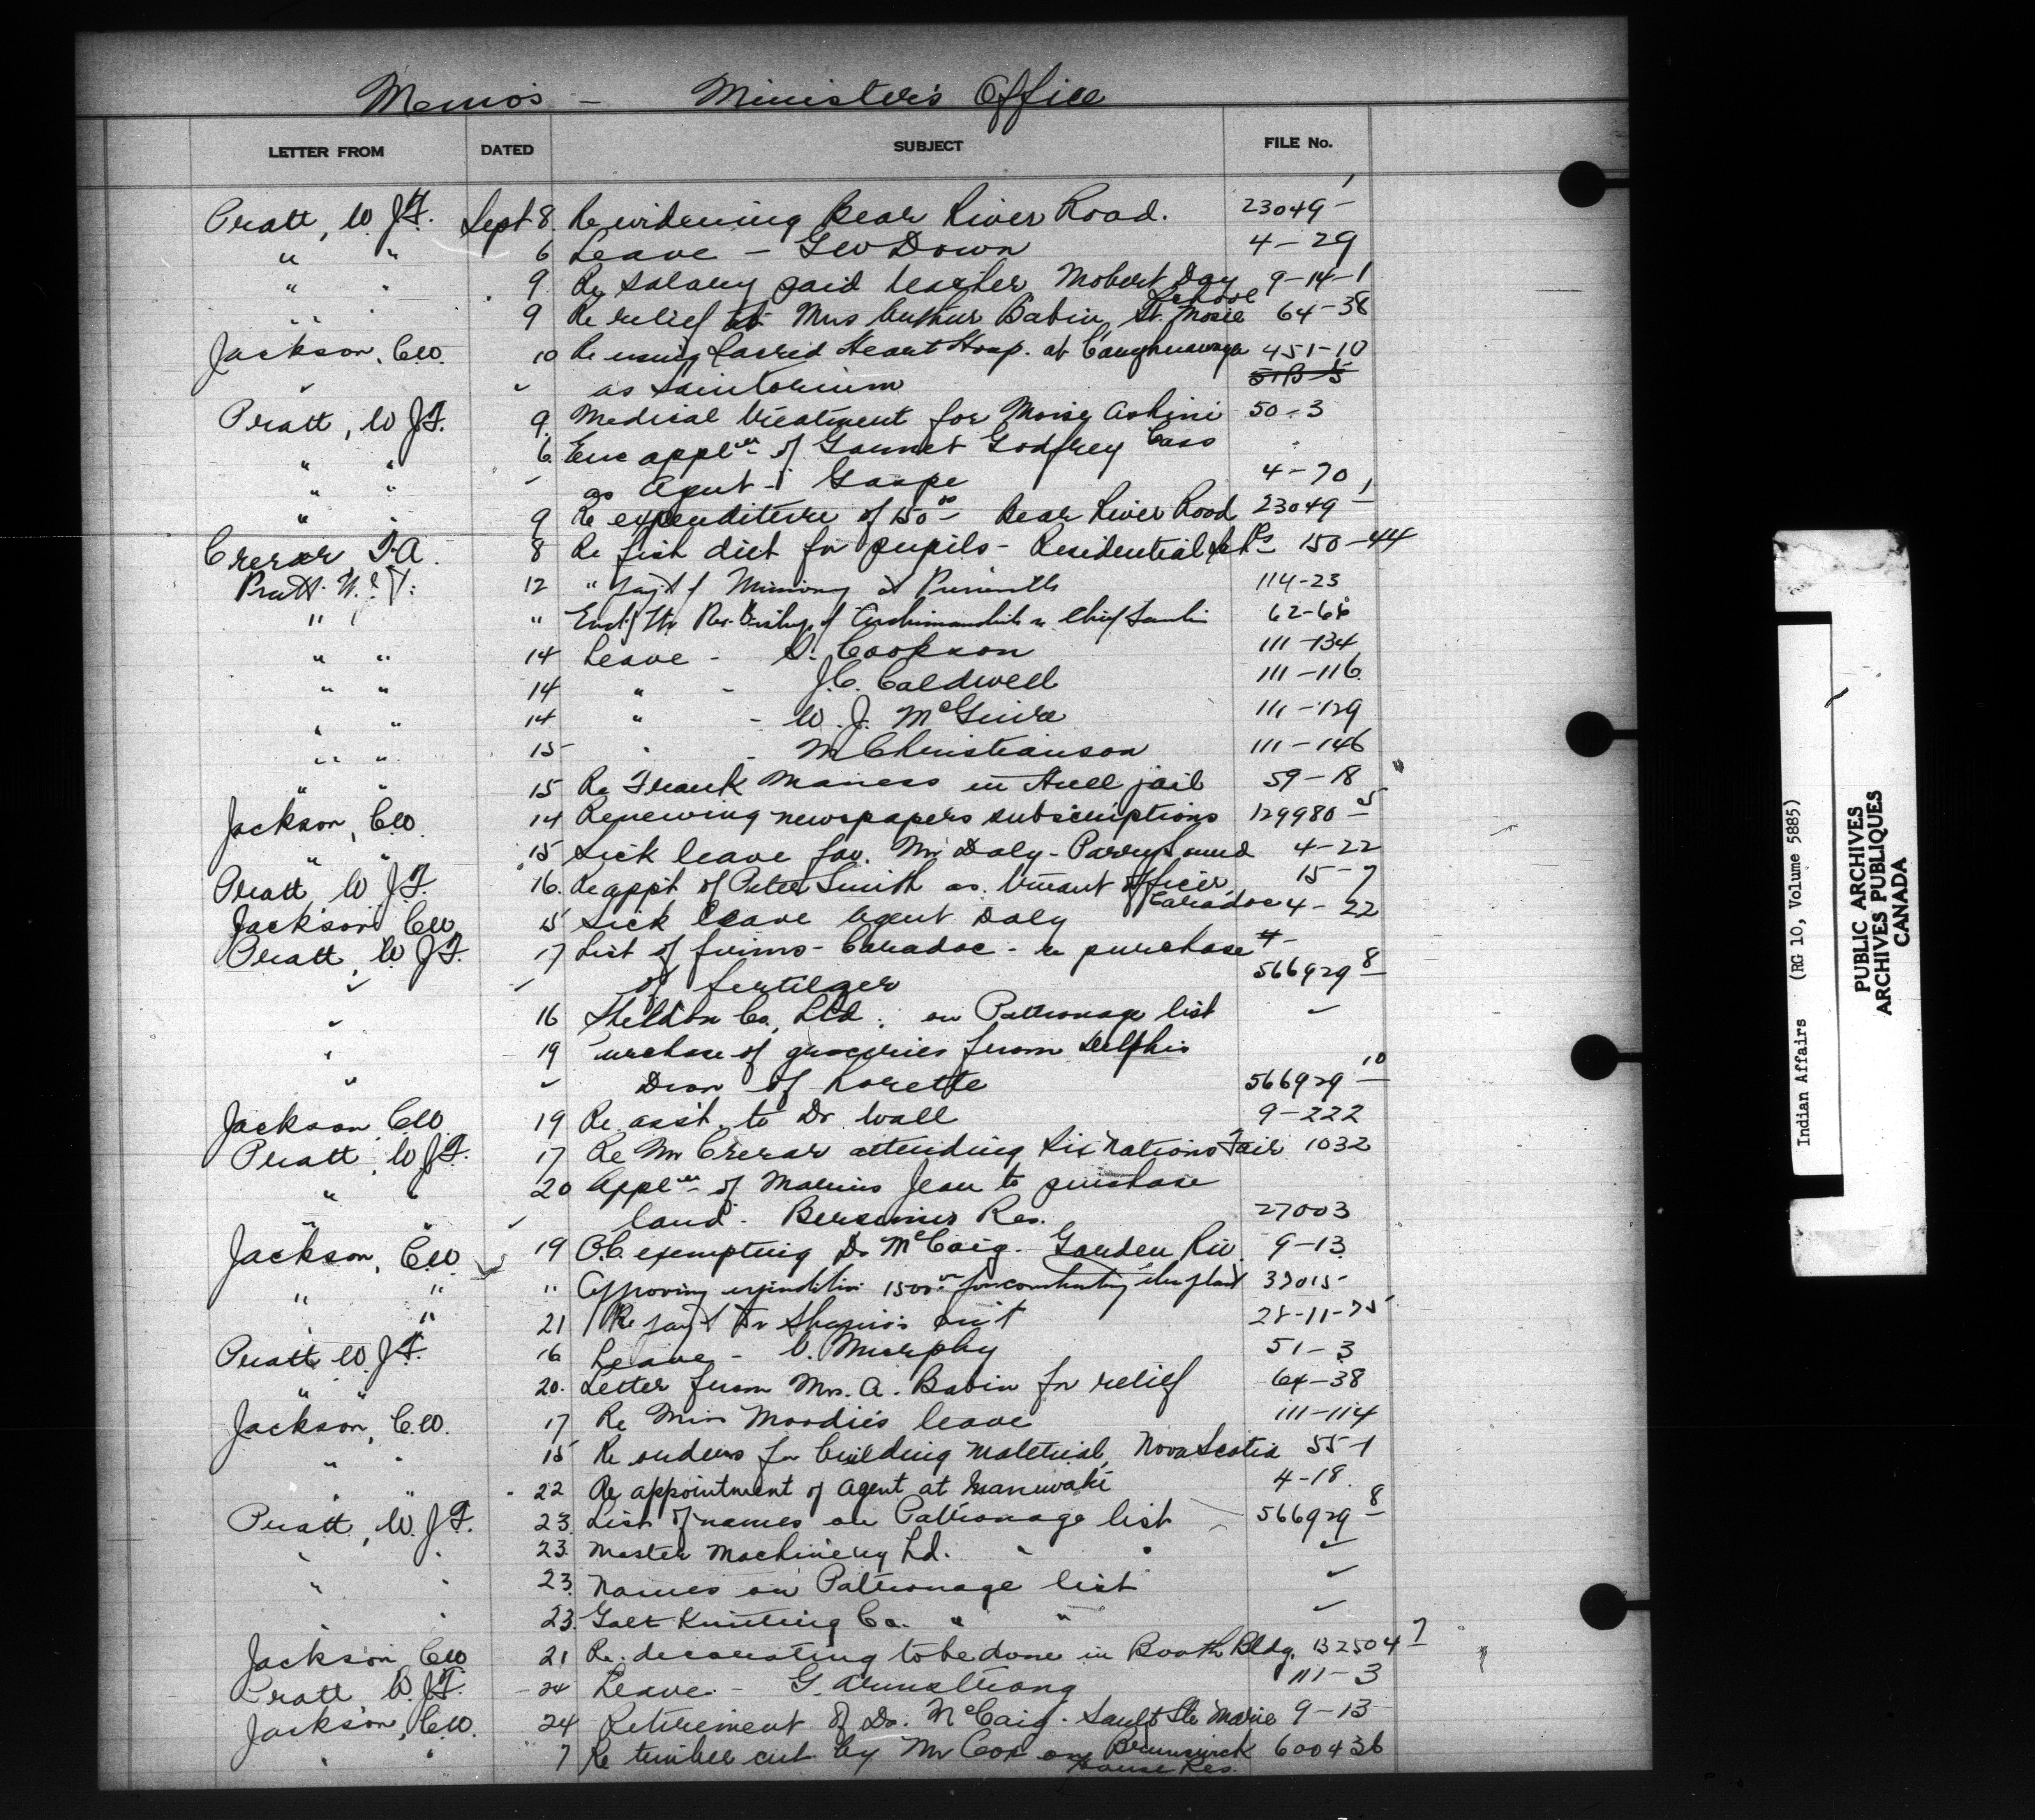 Memo's - Minister's Office
LETTER FROM DATED SUBJECT FILE No.
Pratt, W. J. F. Sept 8. Re widening Bear River Road. 23049-1
" " 6 Leave - Geo Down 4-29
" " 9 Re salary paid teacher Mobert Day School 9-14-1
" " 9 Re relief to Mrs Arthur Babin, St. Mosie 64-38
Jackson, C.W. 10 Re using Sacred Heart Hosp. at Caughnawaga 451-10
" " as Sanitorium
Pratt, W J F. 9. Medical treatment for Moise Ashini 50-3
" " 6. Enc appl'cn of Garnet Godfrey Cass
" " " as Agent - Gaspe 4-70
" 9 Re expenditure of 150.00 - Bear River Road 23049-1
Crerar T.A. 8 Re fish diet for pupils - Residential Sch's 150-44
Pratt. W. J. F. 12 " pay't of 114-23
" " " Encl. ltr Rev. Bishop of Archimandrite 62-66
" " 14 Leave - Cookson 111-134
" " 14 " - J.C. Caldwell 111-116
" " 14 " - W. J. McGuire 111-129
" " 15 " - M Christianson 111-146
" " 15 Re Frank Maness in Hull jail 59-18
Jackson, C.W. 14 Renewing newspapers subscriptions 129980-5
" " 15 Sick leave for Mr Daly - Parry Sound 4-22
Pratt W J. F. 16. Re app't of Peter Smith as Truant Officer, Caradoc 15-7
Jackson C.W. 15 Sick leave Agent Daly 4-22
Pratt, W J F. 17 List of firms - Caradoc - re purchase
" " of fertilzer 566929-8
" 16 Sheldon Co. Ltd. on Patronage list "
" 19 Purchase of groceries from Delphis
" " Dion of Lorette 566929-10
Jackson C.W. 19 Re ass't. to Dr. Wall 9-222
Pratt, W J F. 17 Re Mr Crerar attending Six Nations Fair 1032
" " 20 Appl'cn of Marius Jean to purchase
" " " land - Bersimis Res. 27003
Jackson, C.W. 19 O.C. exempting Dr McCaig - Garden Riv. 9-13
" " " Approving expenditure 1500.00 for constructing plant 37015-
" " 21 Re pay't Dr Shapiro's 28-11-25
Pratt W. J. F. 16 Leave - Murphy 51-3
" " 20. Letter from Mrs. A. Babin for relief 64-38
Jackson, C.W. 17 Re Miss Moodie's leave 111-114
" " 15 Re orders for building material, Nova Scotia 55-1
" " 22 Re appointment of Agent at Maniwaki 4-18.
Pratt, W. J F. 23. List of names on Patronage list 566929-8
" " 23. Master Machinery Ld. " " "
" " 23. Names on Patronage list "
" " 23. Galt Knitting Co. " " "
Jackson, C.W. 21 Re. decorating to be done in Booth Bldg. 132504-7
Pratt W. J F. 24 Leave - G. Armstrong 111-3
Jackson, C.W. 24 Retirement of Dr. McCaig - Sault Ste Marie 9-13
" " 7 Re timber cut by Mr Cox on Brunswick House Res. 600436
Indian Affairs (RG 10, Volume 5885)
PUBLIC ARCHIVES
ARCHIVES PUBLIQUES
CANADA